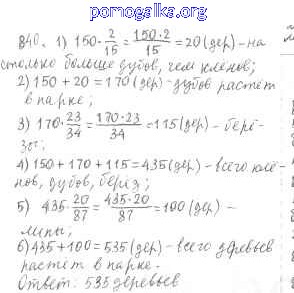 pomogalka.org
840. 1) 150 · 2/15 = 150·2/15 = 20 (дер) - на
столько больше дубов, чем клёнов;
2) 150 + 20 = 170 (дер) - дубов растёт
в парке;
3) 170 · 23/34 = 170·23/34 = 115 (дер) - берё-
зы;
4) 150 + 170 + 115 = 435 (дер) - всего клё-
нов, дубов, берёз;
5) 435 · 20/87 = 435·20/87 = 100 (дер) -
липы;
6) 435 + 100 = 535 (дер) - всего деревьев
растёт в парке.
Ответ: 535 деревьев